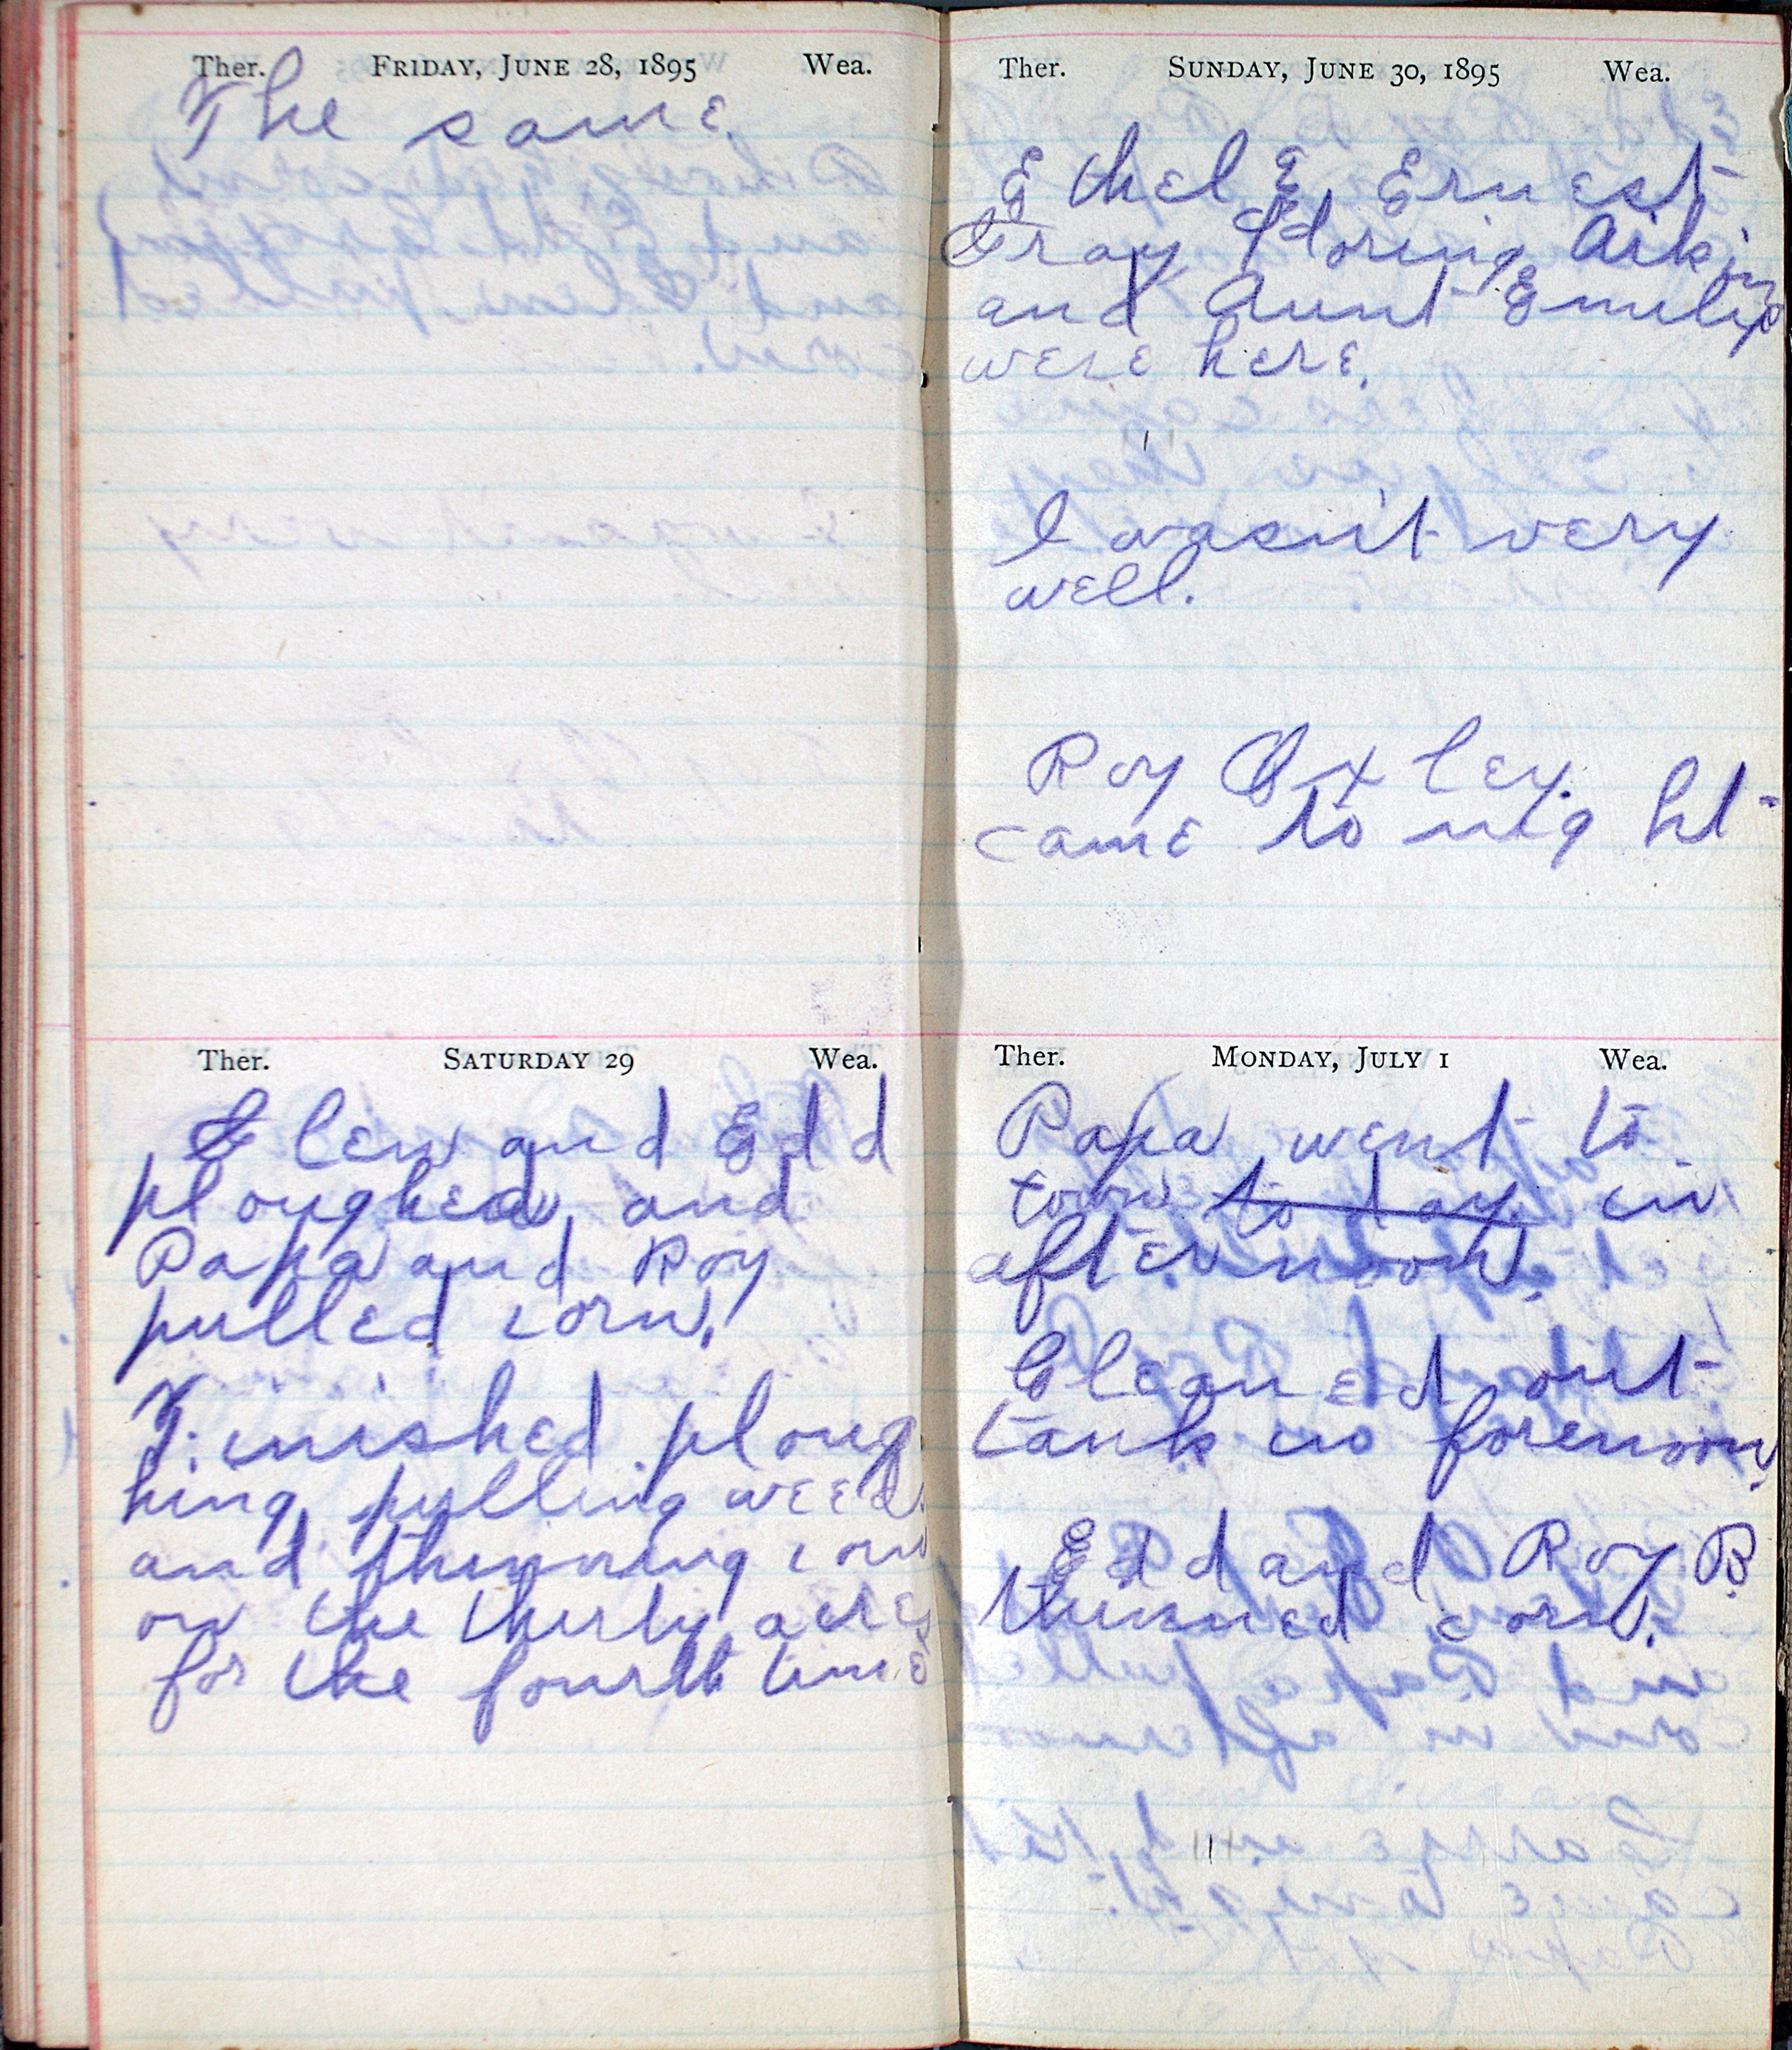 Ther. FRIDAY, JUNE 28, 1895 Wea.
The same.
Ther. SATURDAY 29 Wea.
Glen and Edd
ploughed, and
Papa and Roy
pulled corn.
Finished ploug
hing, pulling weeds
and thinning corn
on the thirty acres
for the fourth time
Ther. SUNDAY, JUNE 30, 1895 Wea.
Ethel E, Ernest
Gray, Floring Aikin
and Aunt Emily
were here.
I wasn't very
well.
Roy Oxley.
came to night
Ther. MONDAY, JULY 1 Wea.
Papa went to
town to day. in
afternoon.
Cleaned out
tank in forenoon.
Edd and Roy B.
thinned corn.